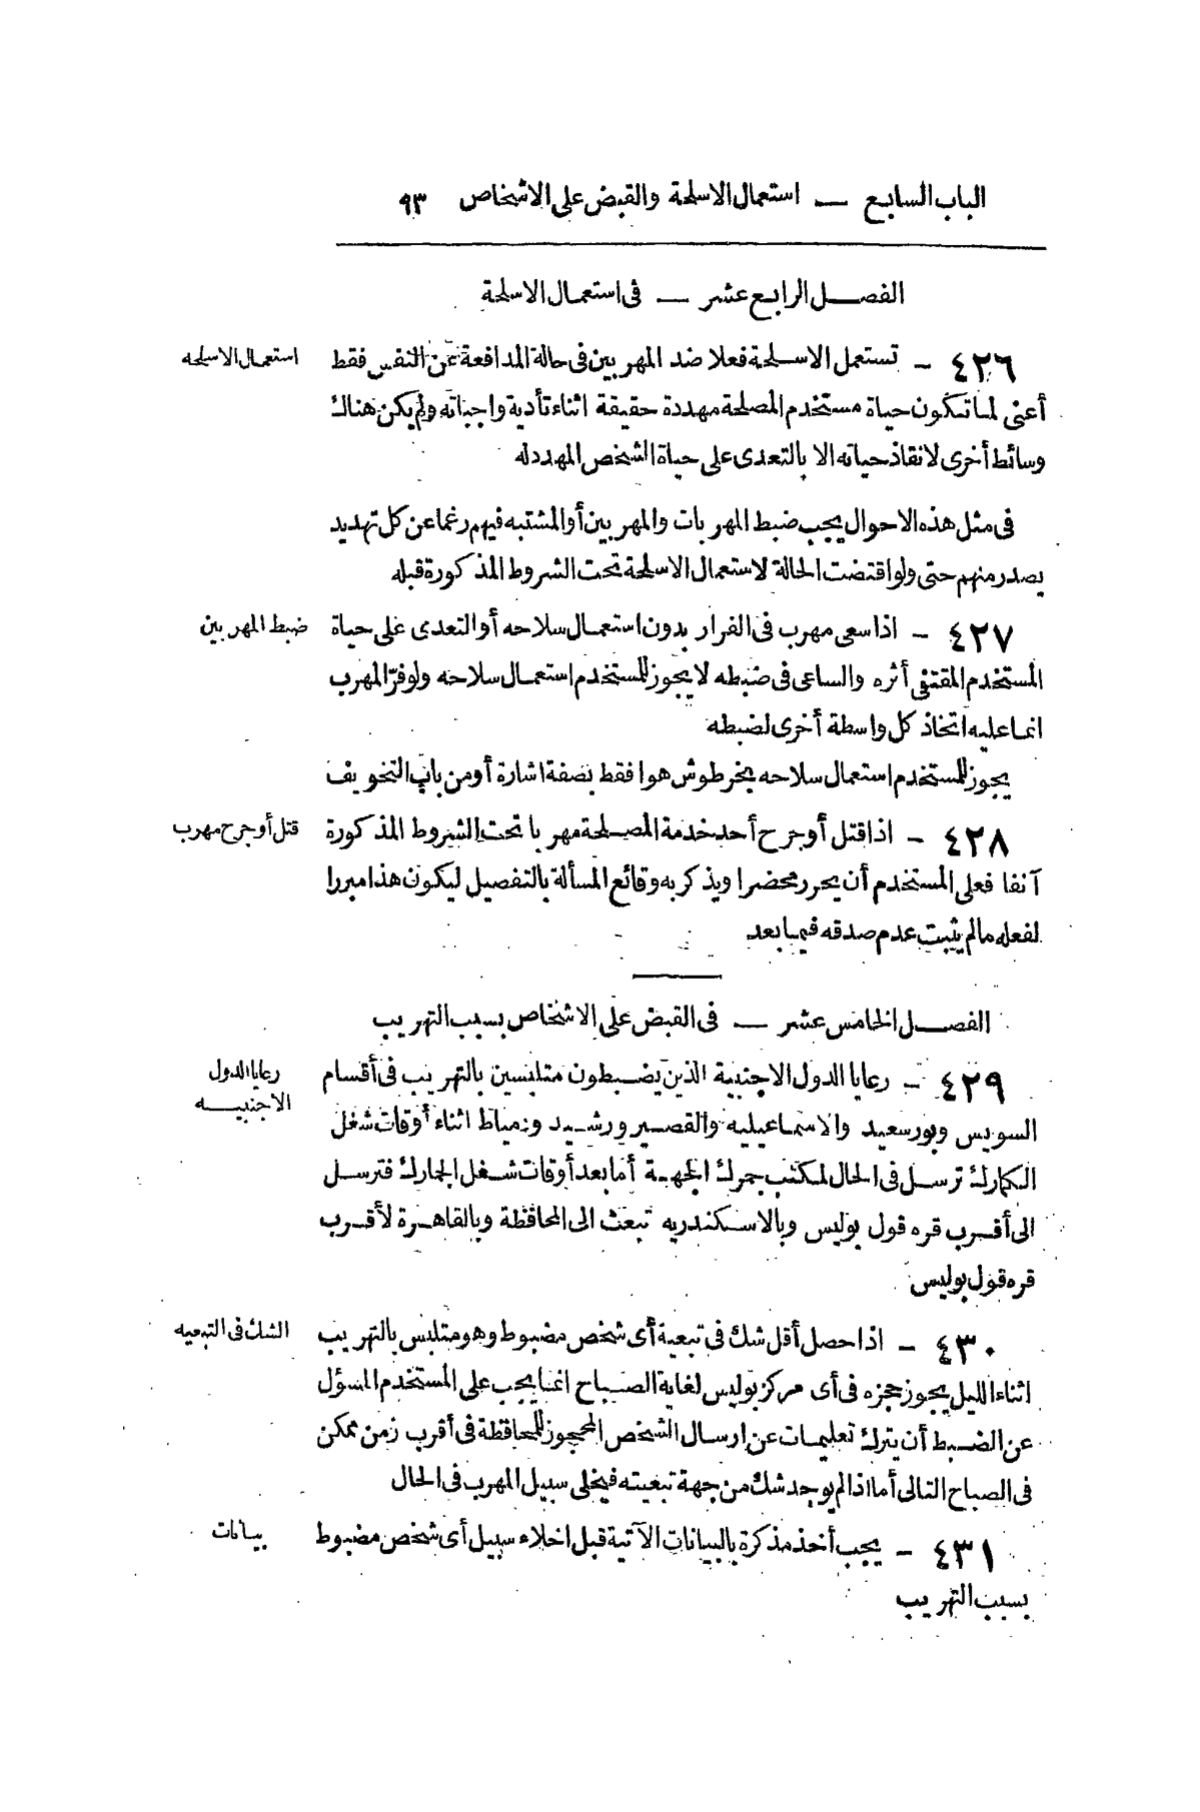 الباب السابع — استعمال الاسلحة والقبض على الاشخاص ٩٣
الفصل الرابع عشر — فى استعمال الاسلحة
استعمال الاسلحه
٤٢٦ — تستعمل الاسلحة فعلا ضد المهربين فى حالة المدافعة عن النفس فقط
أعنى لما تكون حياة مستخدم المصلحة مهددة حقيقة اثناء تأدية واجباته ولم يكن هناك
وسائط أخرى لانقاذ حياته الا بالتعدى على حياة الشخص المهدد له
فى مثل هذه الاحوال يجب ضبط المهربات والمهربين أو المشتبه فيهم رغما عن كل تهديد
يصدر منهم حتى ولو اقتضت الحالة لاستعمال الاسلحة تحت الشروط المذكورة قبله
ضبط المهربين
٤٢٧ — اذا سعى مهرب فى الفرار بدون استعمال سلاحه أو التعدى على حياة
المستخدم المقتفى أثره والساعى فى ضبطه لا يجوز للمستخدم استعمال سلاحه ولو فرّ المهرب
انما عليه اتخاذ كل واسطة أخرى لضبطه
يجوز للمستخدم استعمال سلاحه بخرطوش هوا فقط بصفة اشارة أو من باب التخويف
قتل أو جرح مهرب
٤٢٨ — اذا قتل أو جرح أحد خدمة المصلحة مهربا تحت الشروط المذكورة
آنفا فعلى المستخدم أن يحرر محضرا ويذكر به وقائع المسألة بالتفصيل ليكون هذا مبررا
لفعله مالم يثبت عدم صدقه فيما بعد
الفصل الخامس عشر — فى القبض على الاشخاص بسبب التهريب
رعايا الدول
الاجنبيه
٤٢٩ — رعايا الدول الاجنبية الذين يضبطون متلبسين بالتهريب فى أقسام
السويس وبورسعيد والاسماعيليه والقصير ورشيد ودمياط اثناء أوقات شغل
الكمارك ترسل فى الحال لمكتب جمرك الجهة أما بعد أوقات شغل الجمارك فترسل
الى أقرب قره قول بوليس وبالاسكندريه تبعث الى المحافظة وبالقاهرة لأقرب
قره قول بوليس
الشك فى التبعيه
٤٣٠ — اذا حصل أقل شك فى تبعية أى شخص مضبوط وهو متلبس بالتهريب
اثناء الليل يجوز حجزه فى أى مركز بوليس لغاية الصباح انما يجب على المستخدم المسؤل
عن الضبط أن يترك تعليمات عن ارسال الشخص المحجوز للمحافظة فى أقرب زمن ممكن
فى الصباح التالى أما اذا لم يوجد شك من جهة تبعيته فيخلى سبيل المهرب فى الحال
بيانات
٤٣١ — يجب أخذ مذكرة بالبيانات الآتية قبل اخلاء سبيل أى شخص مضبوط
بسبب التهريب